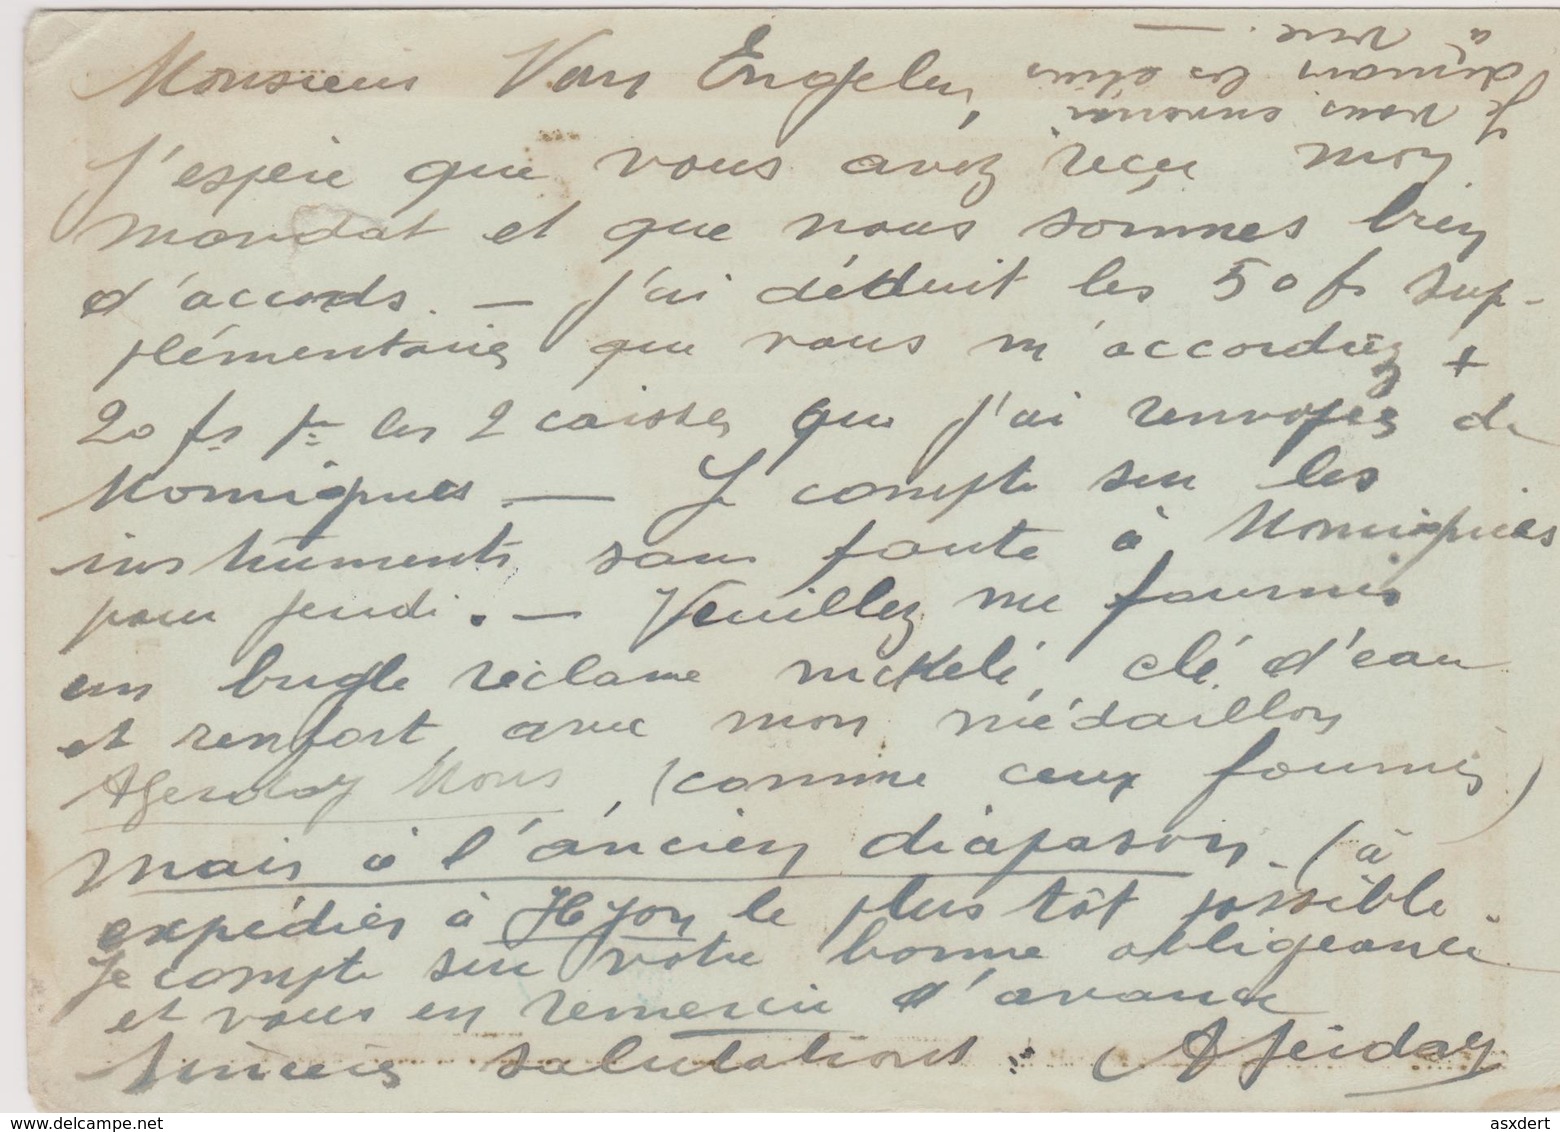 Monsieur Van Engelen,
J'espère que vous avez reçu mon
mandat et que nous sommes bien
d'accords. — J'ai déduit les 50 fs sup-
plémentaires que vous m'accordiez +
20 fs pr les 2 caisses que j'ai renvoyées de
Momignies — Je compte sur les
instruments sans faute à Momignies
pour jeudi. — Veuillez me fournir
un bugle réclame nickelé, clé d'eau
et renfort, avec mon médaillon
Mons, (comme ceux fournis)
mais à l'ancien diapason. (à
expédier à Hyon le plus tôt possible.
Je compte sur votre bonne obligeance
et vous en remercie d'avance
Sincères salutations
Je vous enverrai
demain les étuis
à vue. —
www.delcampe.net
asxdert